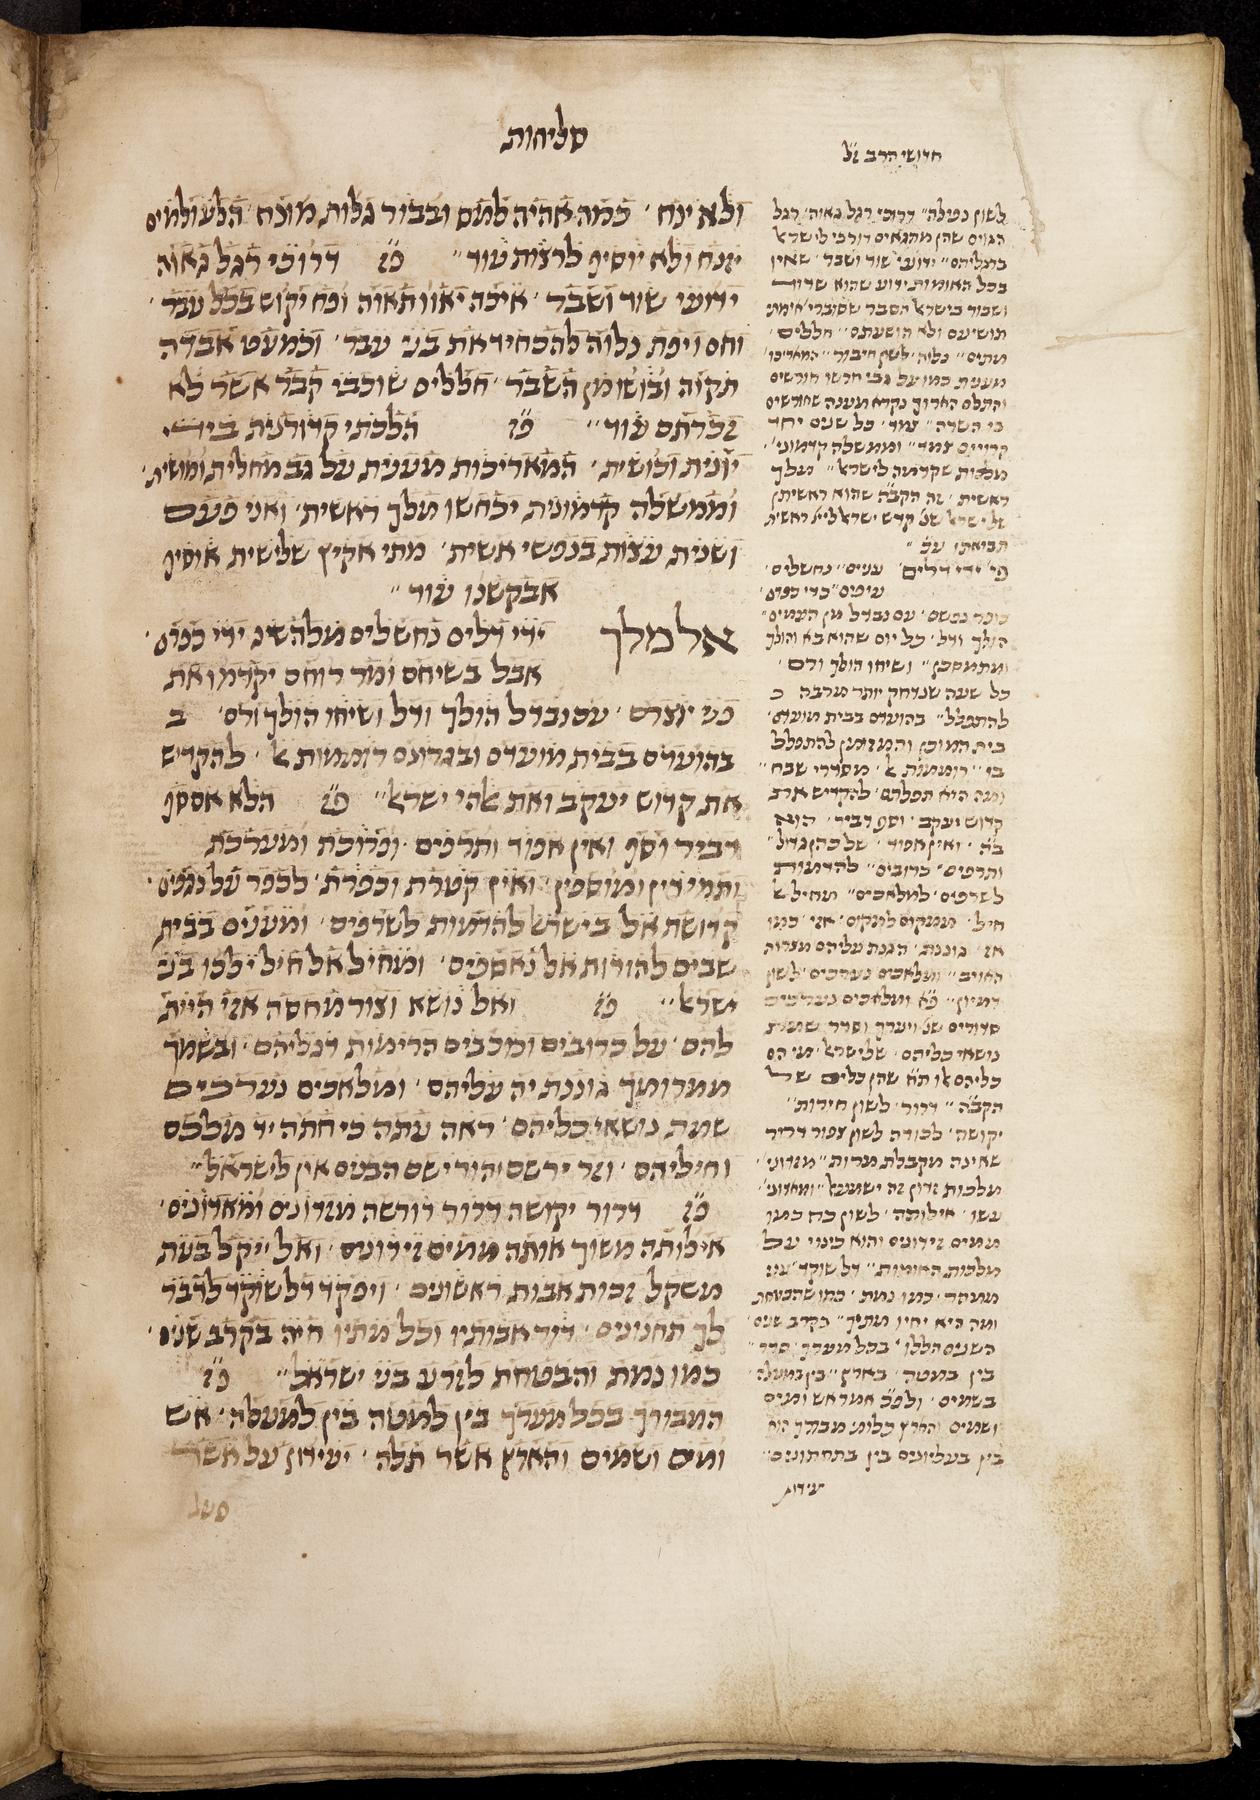 סליחות
חדושי הרב ז״ל
ולא ינח׳ כמה אהיה למס ובבור גלות מונח׳ הלעולמים
יזנח ולא יוסיף לרצות עוד״ פז׳ דרוכי רגל גאוה
ידועי שוד ושבר׳ איכה יאוו תאוה וכח יקוש בכל עבר׳
וחס ויפת נלוה להכחיד את בני עבר׳ וכמעט אבדה
תקוה ובושו מן השבר׳ חללים שוכבי קבר אשר לא
זכרתם עוד״ פז׳ הלכתי קדורנית ביד
יונית וכושית׳ המאריכות מענית על גב מחלית ומושית׳
וממשלה קדמונית יכחשו מלך ראשית׳ ואני פעם
ושנית עצות בנפשי אשית׳ מתי אקיץ שלישית אוסיף
אבקשנו עוד״
אלמלך ידי דלים נחשלים מלהשיג ידי כפרם׳
אבל בשיחם ומר רוחם יקדמו את
פני יוצרם׳ עם נבדל הולך ודל ושיחו הולך ורם׳ ב
בהועדם בבית מועדם ובגרונם רוממות אל׳ להקדיש
את קדוש יעקב ואת אלהי ישראל״ פז׳ הלא אסף
דביר וסף ואין אפוד ותרפים׳ ופרוכת ומערכת
ותמידין ומוספין׳ ואין קטרת וכפרת׳ לכפר על נגפים׳
קדושת אל בישראל להדמות לשרפים׳ ומענים בבית
שבים להורות אל נאספים׳ ומחיל אל חיל ילכו בני
ישראל״ פז׳ ואל נושא וצור מחסה אזי היית
להם׳ על כרובים ומכבים הרימות דגליהם׳ ובשמך
ממרומך גוננת יה עליהם׳ ומלאכים נערכים
שמת נושאי כליהם׳ ראה עתה כי חתה יד מלכם
וחיליהם׳ וגר ירשם יהודי שם הבטים אין לישראל״
פז׳ דרור יקושה דרוד דורשה מזדונים ומאדונים׳
אילותה משוך אותה ממים זידונים׳ ואל ייקל בעת
משקל זכות אבות ראשונים׳ ויפקד דל שוקד לדבר
לך תחנונים׳ דוד אבותיו וכל מתיו חיה בקרב שנים׳
כמו נמת והבטחת לזרע בני ישראל״ פז׳
המבורך בכל מערך בין למטה בין למעלה׳ אש
ומים ושמים והארץ אשר תלה׳ יעידון על אשר
לשון נפילה״ דרוכי רגל גאוה׳ רגל
הגוים שהן מתגאים דורכי לישראל
ברגליהם״ ידועי שוד ושבר׳ שאין
בכל האומות ידוע שהוא שדוד
ושבור בישראל הסבר שסוברי׳ אימתי
תושיעם ולא הושעתם״ חללים׳
מתים״ נלוה׳ לשון חיבור״ המאריכו׳
מענית כמו על גבי חרשו חורשים
והתלם הארוך נקרא מענה שחורשים
בי השדה״ צמד׳ כל שנים יחד
קרויים צמד״ וממשלה קדמוני׳׳
מלכות שקדמה לישראל״ מלך
ראשית׳ זה הקב״ה שהוא ראשית
של ישראל שנ׳ קדש ישראל ליי׳ ראשית
תבואתו עכ״
פי׳ ידי דלים׳ עניים״ נחשלים׳
עיפים״ כדי כפרם׳
כופר נפשם׳ עם נבדל מן העמים״
הולך ודל׳ כל יום שהוא בא והולך
ומתמסכן״ ושיחו הולך ורם׳
כל שעה שנדחק יותר מרבה כ
להתפלל״ בהועדם בבית מועדם׳
בית המוכן והמזומן להתפלל
בו״ רוממות אל׳ מסדרי שבח״
ומה היא תפלתם׳ להקדיש את
קדוש יעקב׳ וסף דביר׳ הוא
ב״ה׳ ואין אפוד׳ של כהן גדול״
ותרפים׳ כרובים״ להדמות
לשרפים׳ למלאכים״ מחיל אל
חיל׳ ממקום למקום׳ אזי׳ כמו
אז׳ גוננת׳ הגנת עליהם מצרות
האויב״ ומלאכים נערכים׳ לשון
דמיון״ פ״א ומלאכים נערכים
סדורים שנ׳ ויערך וסדר שמת
נושאי כליהם׳ של ישראל׳ מי הם
כליהם או ת״א שהן כלים של
הקב״ה״ דרור׳ לשון חירות״
יקושה׳ לכודה לשון צפור דרור
שאינה מקבלת מרות״ מזדוני׳׳
מלכות זדון זה ישמעאל״ ומאדוני׳׳
עשו׳ אילותה׳ לשון כח כמו
ממים זידונים והוא כינוי על
מלכות האומות״ דל שוקד׳ עני
ממהר׳ כמו נמת׳ כמו שהבטחת
ומה היא יחיו מתיך״ בקרב שנים׳
השנים הללו׳ בכל מערך׳ סדר״
בין במטה׳ בארץ״ בין במעלה׳
בשמים׳ ולפ״כ אמר אש ומים
ושמים והארץ כלומ׳ מבורך הוא
בין בעליונים בין בתחתונים״
עידית
פעל